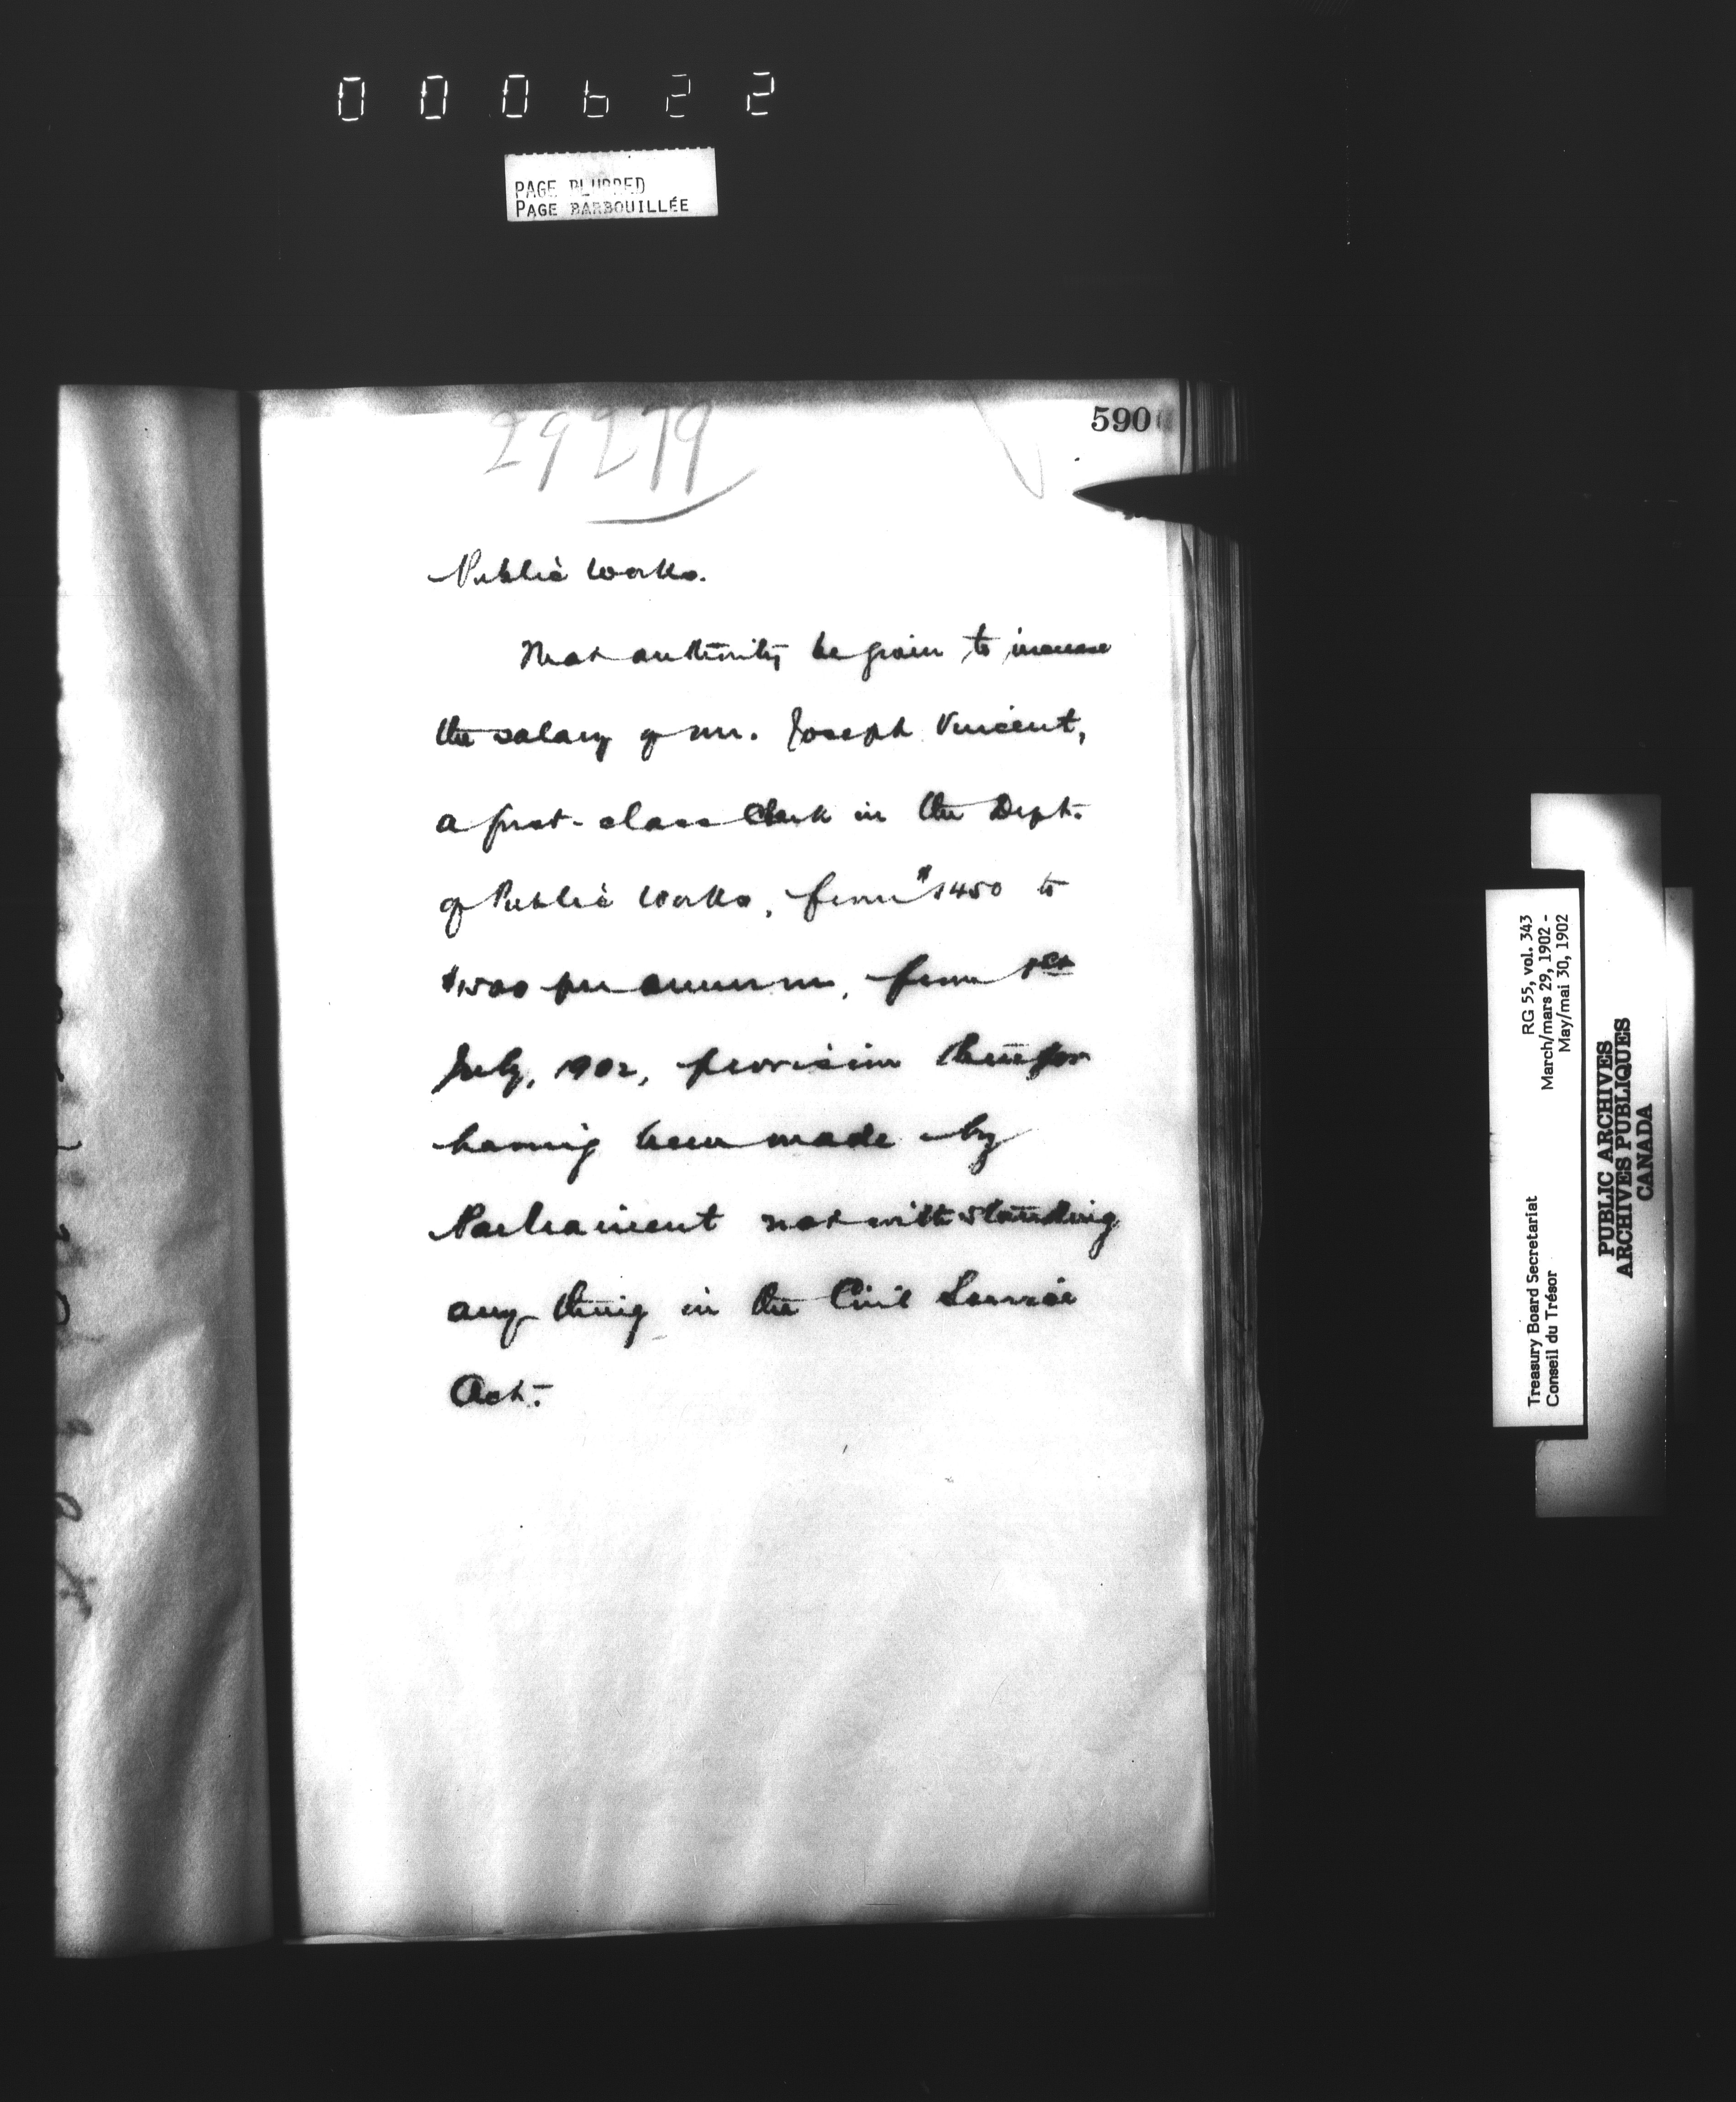 000622
PAGE BLURRED
PAGE BARBOUILLÉE
590
29279
Public Works.
That authority be given to increase
the salary of Mr. Joseph Vincent,
a first-class Clerk in the Dept.
of Public Works, from $1450 to
$1500 per annum, from 1st
July, 1902, provision therefor
having been made by
Parliament notwithstanding
any thing in the Civil Service
Act.
RG 55, vol. 343
March/mars 29, 1902 -
May/mai 30, 1902
Treasury Board Secretariat
Conseil du Trésor
PUBLIC ARCHIVES
ARCHIVES PUBLIQUES
CANADA